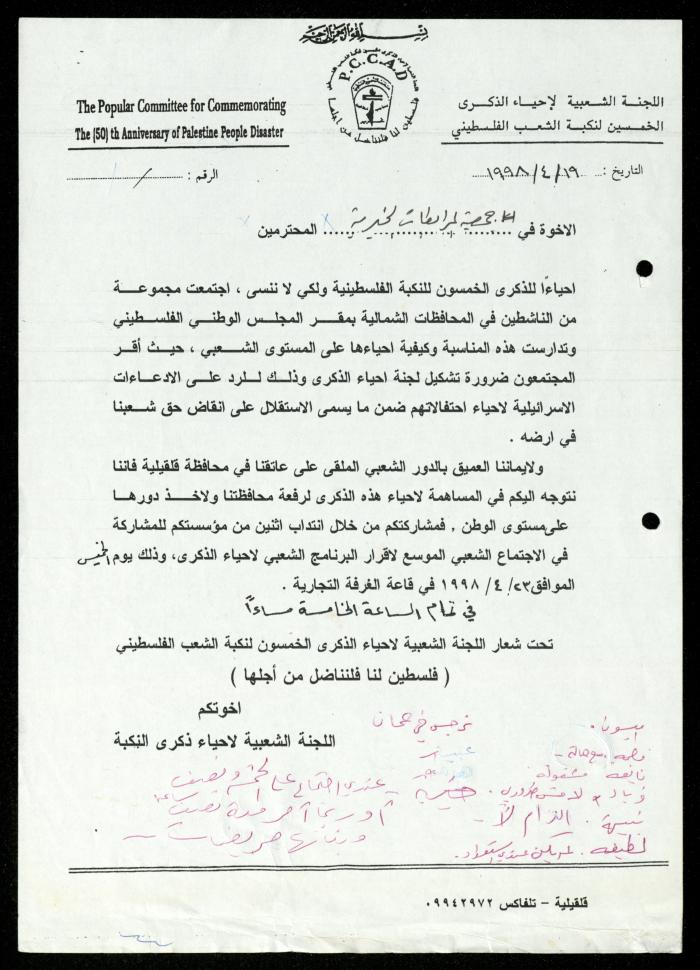 بسم الله الرحمن الرحيم
P.C.C.A.D
فلسطين لنا فلنناضل من أجلها
The Popular Committee for Commemorating
The (50) th Anniversary of Palestine People Disaster
اللجنة الشعبية لاحياء الذكرى
الخمسين لنكبة الشعب الفلسطيني
التاريخ : ١٩٩٨/٤/١٩
الرقم : /
الاخوة في جمعية المرابطات الخيرية المحترمين
احياءًا للذكرى الخمسون للنكبة الفلسطينية ولكي لا ننسى ، اجتمعت مجموعة
من الناشطين في المحافظات الشمالية بمقر المجلس الوطني الفلسطيني
وتدارست هذه المناسبة وكيفية احياءها على المستوى الشعبي ، حيث أقر
المجتمعون ضرورة تشكيل لجنة احياء الذكرى وذلك للرد على الادعاءات
الاسرائيلية لاحياء احتفالاتهم ضمن ما يسمى الاستقلال على انقاض حق شعبنا
في ارضه .
ولايماننا العميق بالدور الشعبي الملقى على عاتقنا في محافظة قلقيلية فاننا
نتوجه اليكم في المساهمة لاحياء هذه الذكرى لرفعة محافظتنا ولاخذ دورها
على مستوى الوطن , فمشاركتكم من خلال انتداب اثنين من مؤسستكم للمشاركة
في الاجتماع الشعبي الموسع لاقرار البرنامج الشعبي لاحياء الذكرى، وذلك يوم الخميس
الموافق٢٣/ ٤/ ١٩٩٨ في قاعة الغرفة التجارية .
في تمام الساعة الخامسة مساءًا
تحت شعار اللجنة الشعبية لاحياء الذكرى الخمسون لنكبة الشعب الفلسطيني
( فلسطين لنا فلنناضل من أجلها )
اخوتكم
اللجنة الشعبية لاحياء ذكرى النكبة
نرجس في عمان
ميسون .
نايفة مشغولة
عندي اجتماع على الخمسة ونصف
نبيهة . التزام لا
لطيفة .
قلقيلية - تلفاكس ٠٩٩٤٢٩٧٢